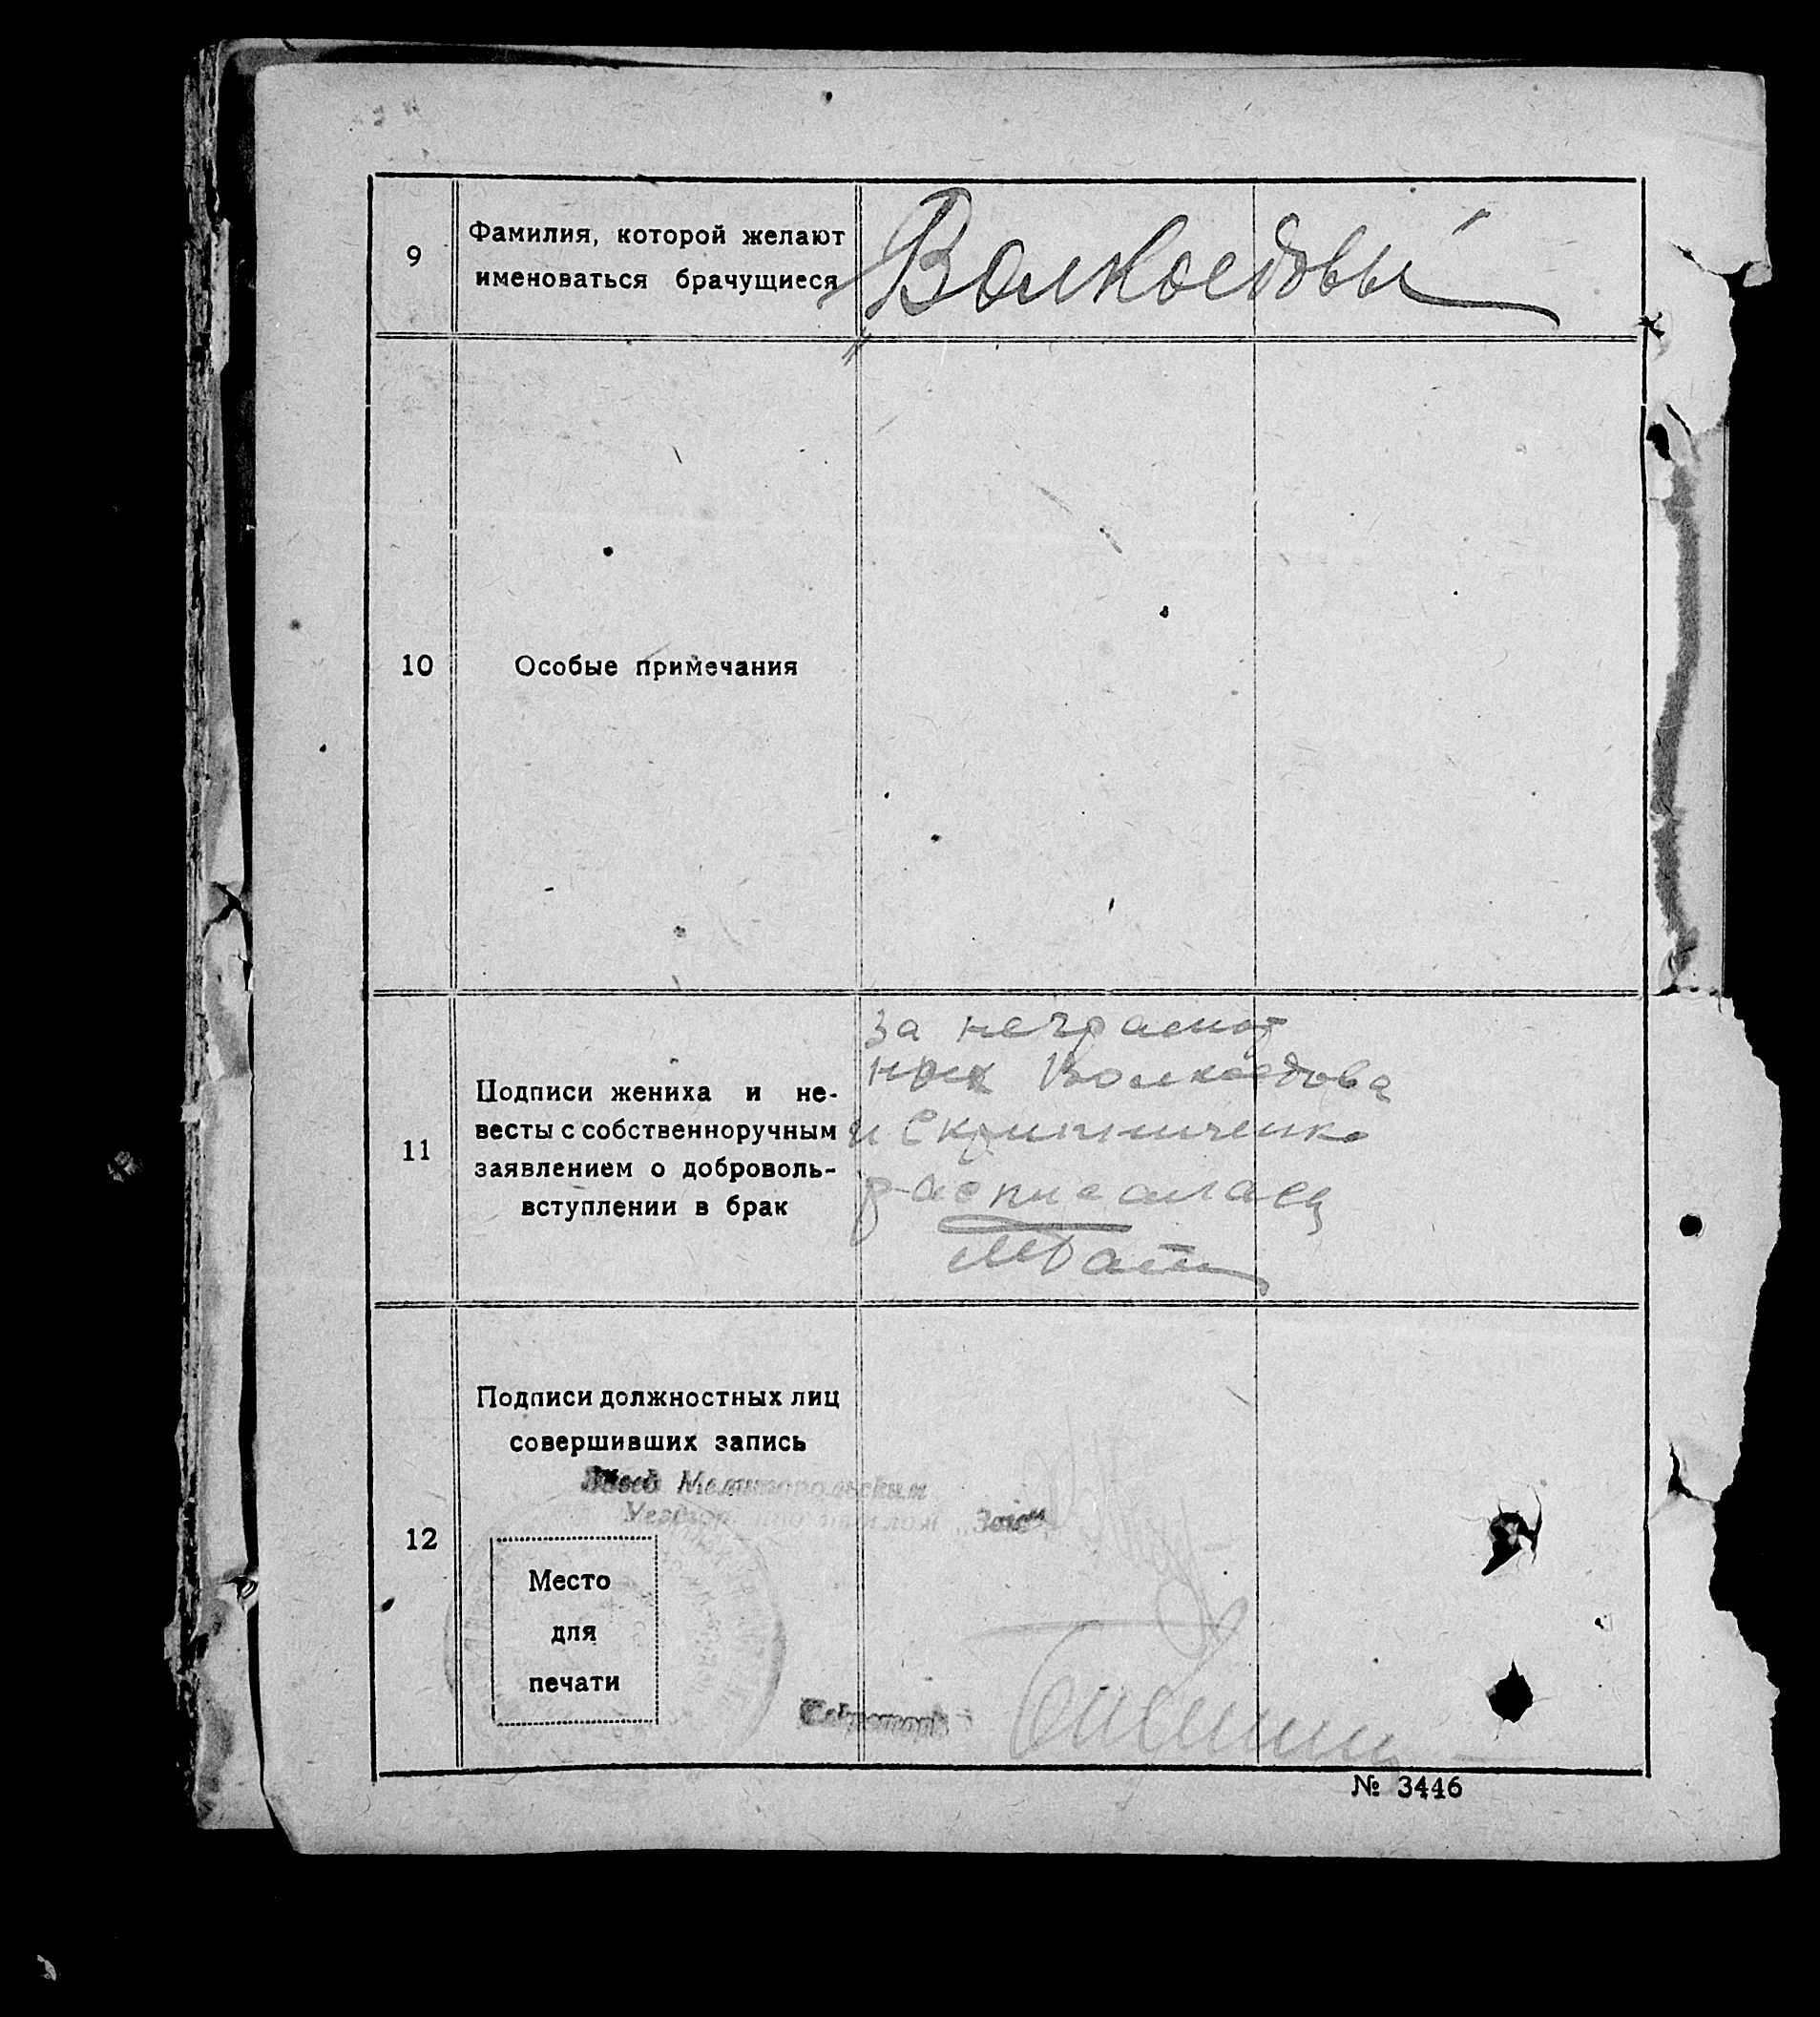 9
Фамилия, которой желают
именоваться брачущиеся
Волкоедовы
10
Особые примечания
11
Подписи жениха и не-
весты с собственноручным
заявлением о доброволь-
вступлении в брак
за неграмот
ных Волкоедова
и Скрипниченко
расписалась
12
Подписи должностных лиц
совершивших запись
Завед Мелитопольским
"Загс"
Место
для
печати
Секретарь
№ 3446